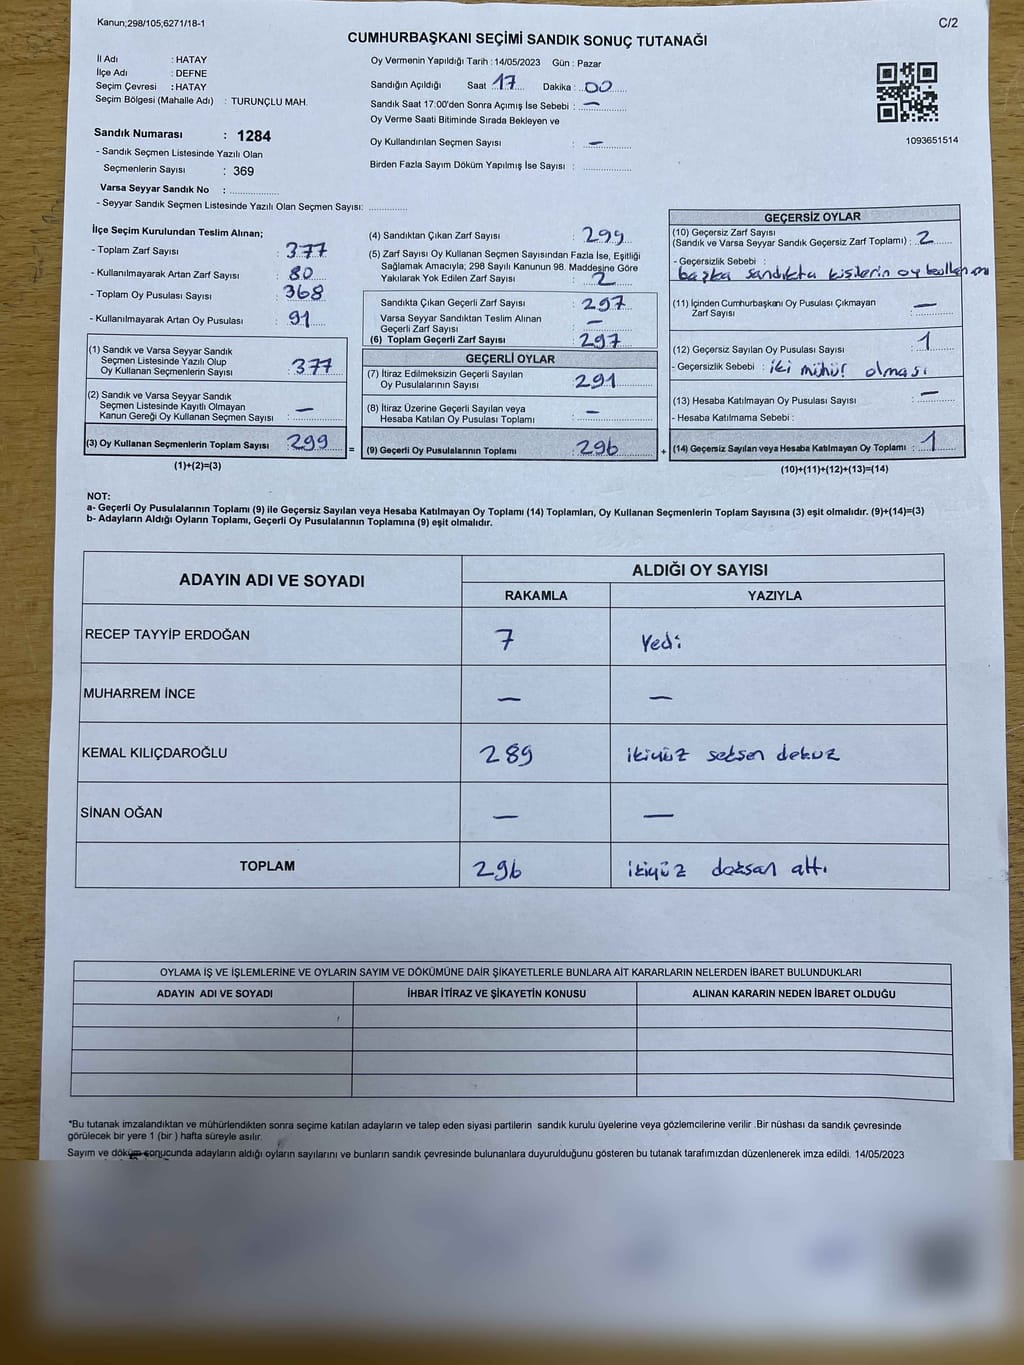 Kanun;298/105,6271/18-1
C/2
CUMHURBAŞKANI SEÇİMİ SANDIK SONUÇ TUTANAĞI
İl Adı : HATAY
İlçe Adı : DEFNE
Seçim Çevresi : HATAY
Seçim Bölgesi (Mahalle Adı) : TURUNÇLU MAH.
Sandık Numarası : 1284
- Sandık Seçmen Listesinde Yazılı Olan
Seçmenlerin Sayısı : 369
Varsa Seyyar Sandık No : ..............
- Seyyar Sandık Seçmen Listesinde Yazılı Olan Seçmen Sayısı: ............
Oy Vermenin Yapıldığı Tarih : 14/05/2023 Gün : Pazar
Sandığın Açıldığı Saat 17 Dakika : 00
Sandık Saat 17:00'den Sonra Açımış İse Sebebi : —
Oy Verme Saati Bitiminde Sırada Bekleyen ve
Oy Kullandırılan Seçmen Sayısı : —
Birden Fazla Sayım Döküm Yapılmış İse Sayısı : ..............
1093651514
İlçe Seçim Kurulundan Teslim Alınan;
- Toplam Zarf Sayısı : 377
- Kullanılmayarak Artan Zarf Sayısı : 80
- Toplam Oy Pusulası Sayısı : 368
- Kullanılmayarak Artan Oy Pusulası : 91
(1) Sandık ve Varsa Seyyar Sandık
Seçmen Listesinde Yazılı Olup
Oy Kullanan Seçmenlerin Sayısı : 377
(2) Sandık ve Varsa Seyyar Sandık
Seçmen Listesinde Kayıtlı Olmayan
Kanun Gereği Oy Kullanan Seçmen Sayısı : —
(3) Oy Kullanan Seçmenlerin Toplam Sayısı : 299
(1)+(2)=(3)
=
(4) Sandıktan Çıkan Zarf Sayısı : 299
(5) Zarf Sayısı Oy Kullanan Seçmen Sayısından Fazla İse, Eşitliği
Sağlamak Amacıyla; 298 Sayılı Kanunun 98. Maddesine Göre
Yakılarak Yok Edilen Zarf Sayısı : 2
Sandıkta Çıkan Geçerli Zarf Sayısı : 297
Varsa Seyyar Sandıktan Teslim Alınan
Geçerli Zarf Sayısı : —
(6) Toplam Geçerli Zarf Sayısı : 297
GEÇERLİ OYLAR
(7) İtiraz Edilmeksizin Geçerli Sayılan
Oy Pusulalarının Sayısı : 291
(8) İtiraz Üzerine Geçerli Sayılan veya
Hesaba Katılan Oy Pusulası Toplamı : —
(9) Geçerli Oy Pusulalarının Toplamı : 296
+
GEÇERSİZ OYLAR
(10) Geçersiz Zarf Sayısı
(Sandık ve Varsa Seyyar Sandık Geçersiz Zarf Toplamı) : 2
- Geçersizlik Sebebi :
başka sandıkta kişilerin oy
(11) İçinden Cumhurbaşkanı Oy Pusulası Çıkmayan
Zarf Sayısı : —
(12) Geçersiz Sayılan Oy Pusulası Sayısı : 1
- Geçersizlik Sebebi : iki mühür olması
(13) Hesaba Katılmayan Oy Pusulası Sayısı : —
- Hesaba Katılmama Sebebi :
(14) Geçersiz Sayılan veya Hesaba Katılmayan Oy Toplamı : 1
(10)+(11)+(12)+(13)=(14)
NOT:
a- Geçerli Oy Pusulalarının Toplamı (9) ile Geçersiz Sayılan veya Hesaba Katılmayan Oy Toplamı (14) Toplamları, Oy Kullanan Seçmenlerin Toplam Sayısına (3) eşit olmalıdır. (9)+(14)=(3)
b- Adayların Aldığı Oyların Toplamı, Geçerli Oy Pusulalarının Toplamına (9) eşit olmalıdır.
ADAYIN ADI VE SOYADI
ALDIĞI OY SAYISI
RAKAMLA YAZIYLA
RECEP TAYYİP ERDOĞAN 7 Yedi
MUHARREM İNCE — —
KEMAL KILIÇDAROĞLU 289 ikiyüz seksen dokuz
SİNAN OĞAN — —
TOPLAM 296 ikiyüz doksan altı
OYLAMA İŞ VE İŞLEMLERİNE VE OYLARIN SAYIM VE DÖKÜMÜNE DAİR ŞİKAYETLERLE BUNLARA AİT KARARLARIN NELERDEN İBARET BULUNDUKLARI
ADAYIN ADI VE SOYADI İHBAR İTİRAZ VE ŞİKAYETİN KONUSU ALINAN KARARIN NEDEN İBARET OLDUĞU
*Bu tutanak imzalandıktan ve mühürlendikten sonra seçime katılan adayların ve talep eden siyasi partilerin sandık kurulu üyelerine veya gözlemcilerine verilir .Bir nüshası da sandık çevresinde
görülecek bir yere 1 (bir ) hafta süreyle asılır.
Sayım ve döküm sonucunda adayların aldığı oyların sayılarını ve bunların sandık çevresinde bulunanlara duyurulduğunu gösteren bu tutanak tarafımızdan düzenlenerek imza edildi. 14/05/2023